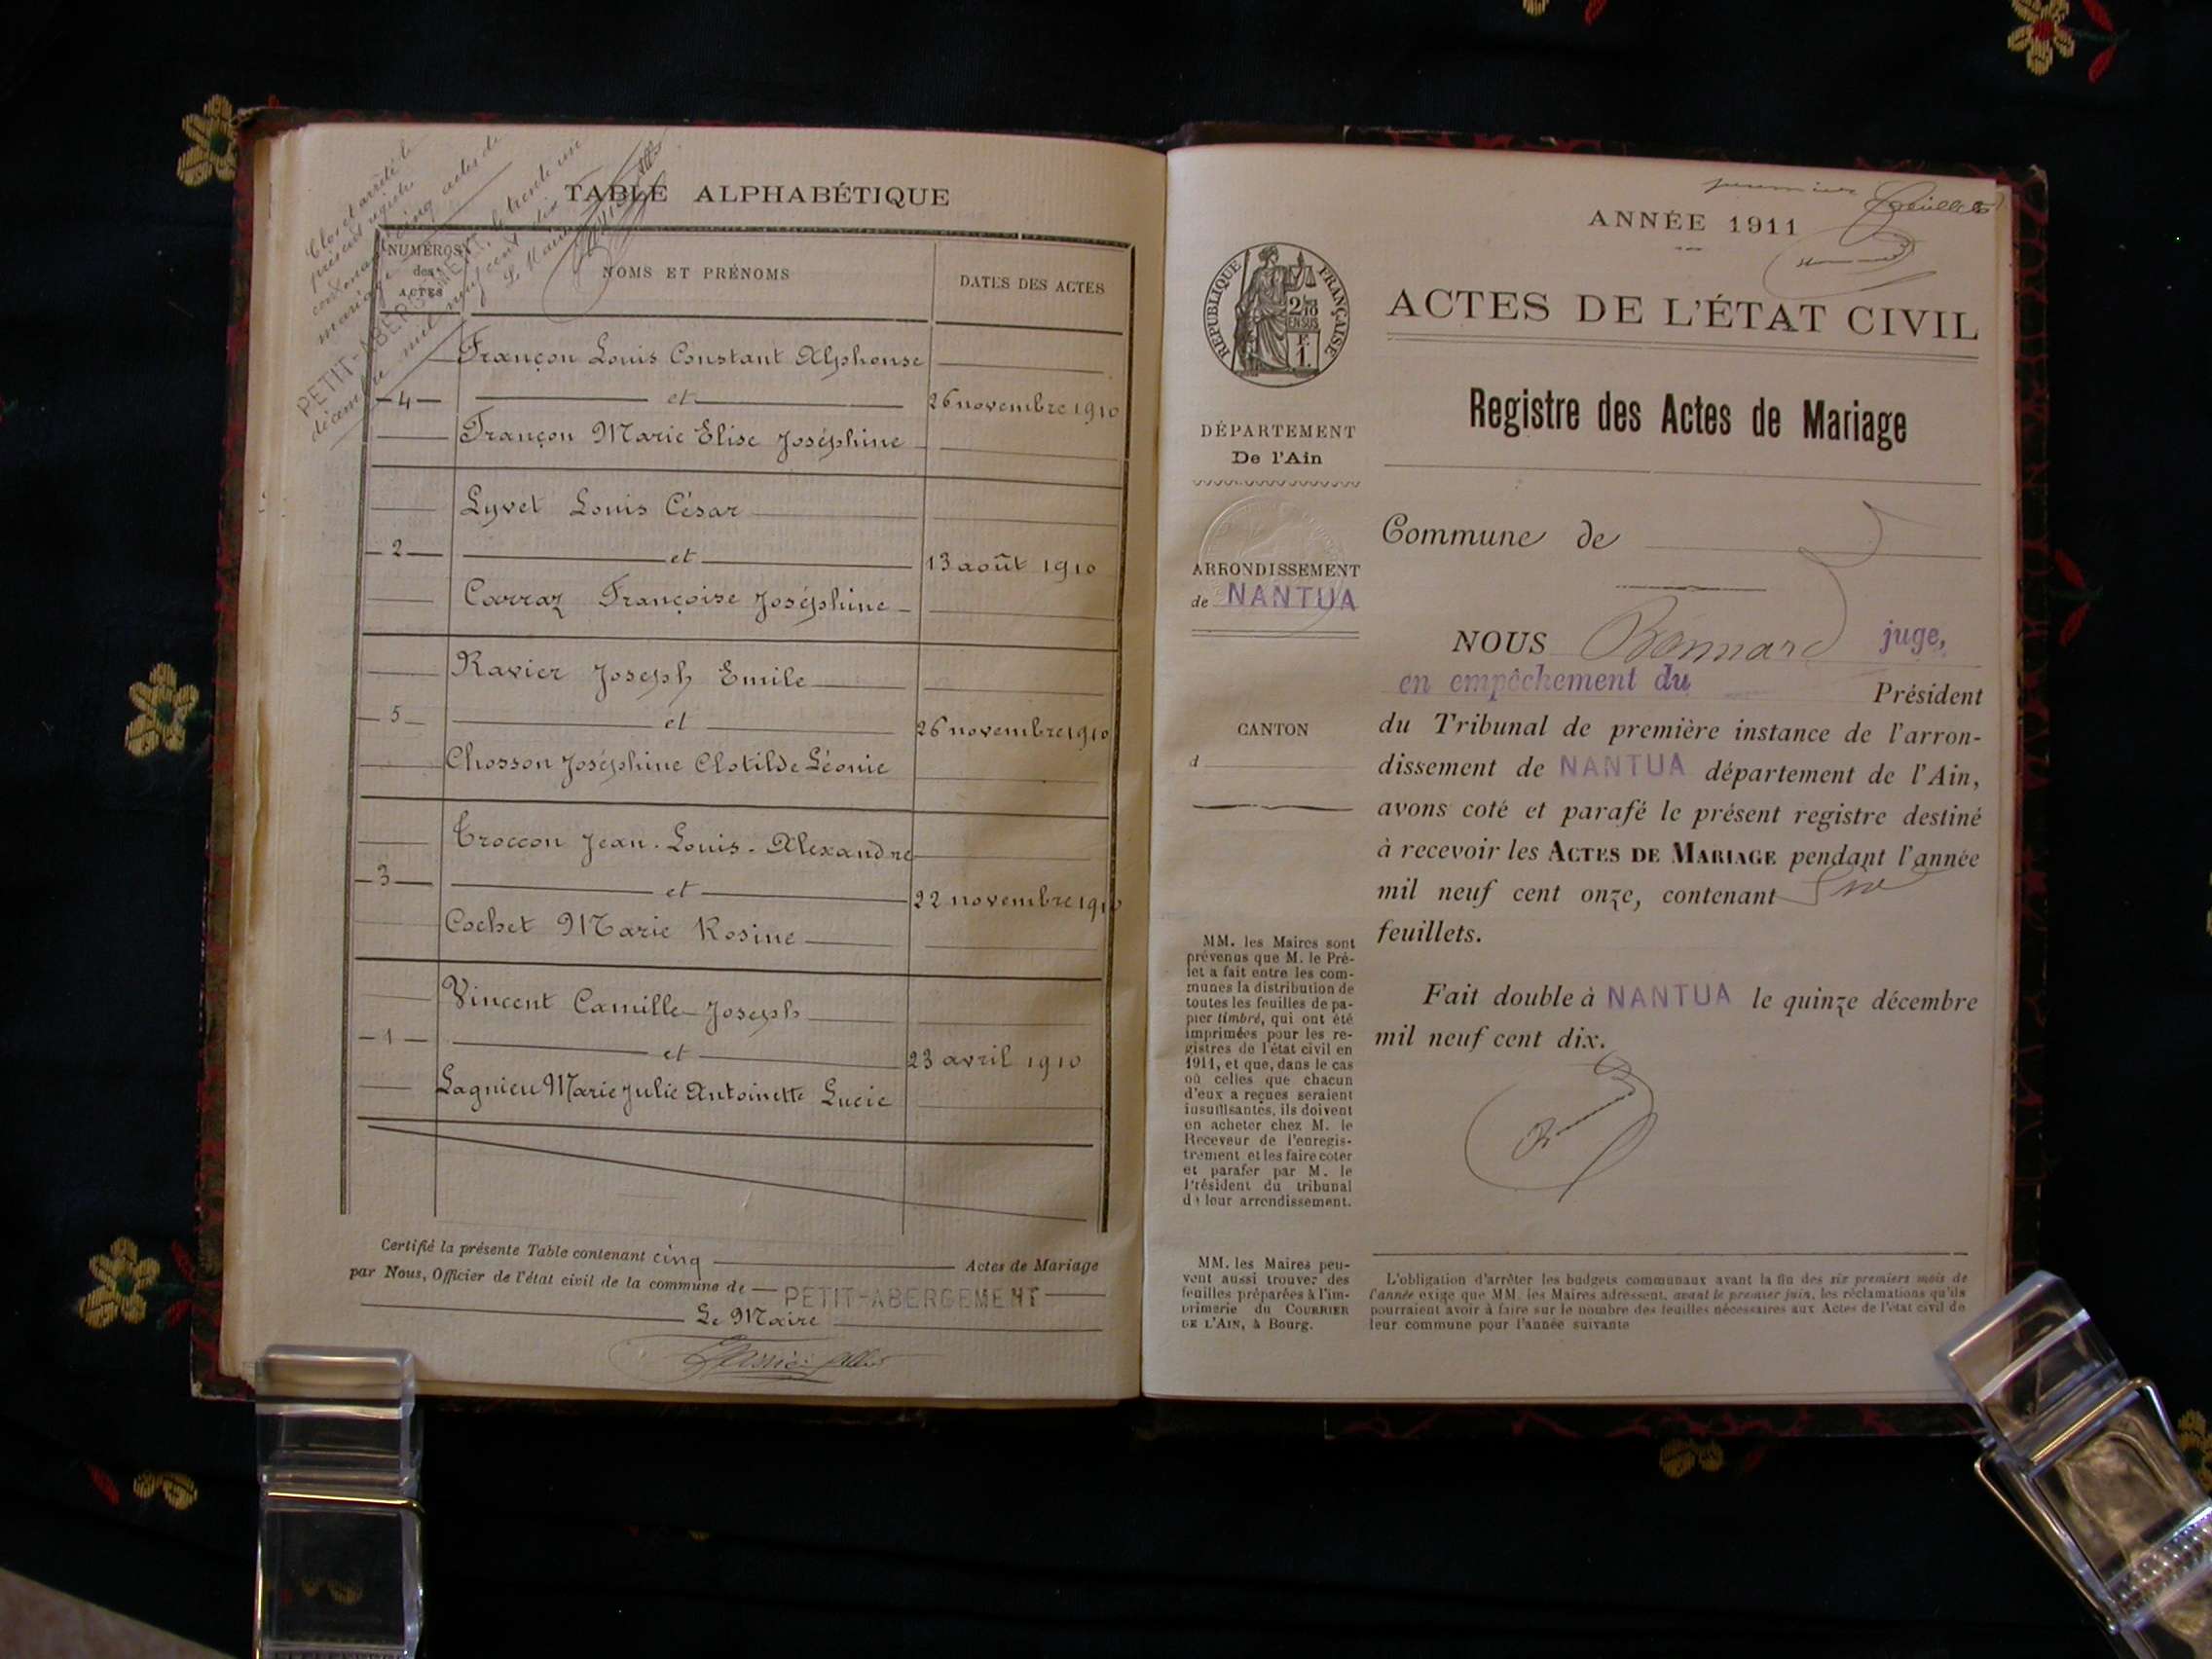 Clos et arrêté le
présent registre
contenant cinq actes de
mariage
PETIT-ABERGEMENT, le trente un
décembre mil neuf cent dix
Le Maire
TABLE ALPHABÉTIQUE
NUMÉROS des ACTES NOMS ET PRÉNOMS DATES DES ACTES
Françon Louis Constant Alphonse
4 et 26 novembre 1910
Françon Marie Elise Joséphine
Lyvet Louis César
2 et 13 août 1910
Carraz Françoise Joséphine
Ravier Joseph Emile
5 et 26 novembre 1910
Chosson Joséphine Clotilde Léonie
Troccon Jean-Louis-Alexandre
3 et 22 novembre 1910
Cochet Marie Rosine
Vincent Camille Joseph
1 et 23 avril 1910
Lagnieu Marie Julie Antoinette Lucie
Certifié la présente Table contenant cinq Actes de Mariage
par Nous, Officier de l'état civil de la commune de PETIT-ABERGEMENT
Le Maire
premier feuillet
ANNÉE 1911
ACTES DE L'ÉTAT CIVIL
Registre des Actes de Mariage
RÉPUBLIQUE FRANÇAISE
2/10
EN SUS
F.
1.
DÉPARTEMENT
De l'Ain
ARRONDISSEMENT
de NANTUA
CANTON
d
MM. les Maires sont
prévenus que M. le Pré-
fet a fait entre les com-
munes la distribution de
toutes les feuilles de pa-
pier timbré, qui ont été
imprimées pour les re-
gistres de l'état civil en
1911, et que, dans le cas
où celles que chacun
d'eux a reçues seraient
insuffisantes, ils doivent
en acheter chez M. le
Receveur de l'enregis-
trement et les faire coter
et parafer par M. le
Président du tribunal
de leur arrondissement.
MM. les Maires peu-
vent aussi trouver des
feuilles préparées à l'im-
primerie du COURRIER
DE L'AIN, à Bourg.
Commune de
NOUS Bonnard juge,
en empêchement du Président
du Tribunal de première instance de l'arron-
dissement de NANTUA département de l'Ain,
avons coté et parafé le présent registre destiné
à recevoir les ACTES DE MARIAGE pendant l'année
mil neuf cent onze, contenant
feuillets.
Fait double à NANTUA le quinze décembre
mil neuf cent dix.
L'obligation d'arrêter les budgets communaux avant la fin des six premiers mois de
l'année exige que MM. les Maires adressent, avant le premier juin, les réclamations qu'ils
pourraient avoir à faire sur le nombre des feuilles nécessaires aux Actes de l'état civil de
leur commune pour l'année suivante